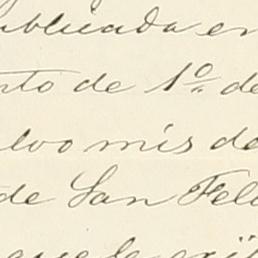 ublicada en
nto de 1º de
lvo mis de
de San Fel
que la